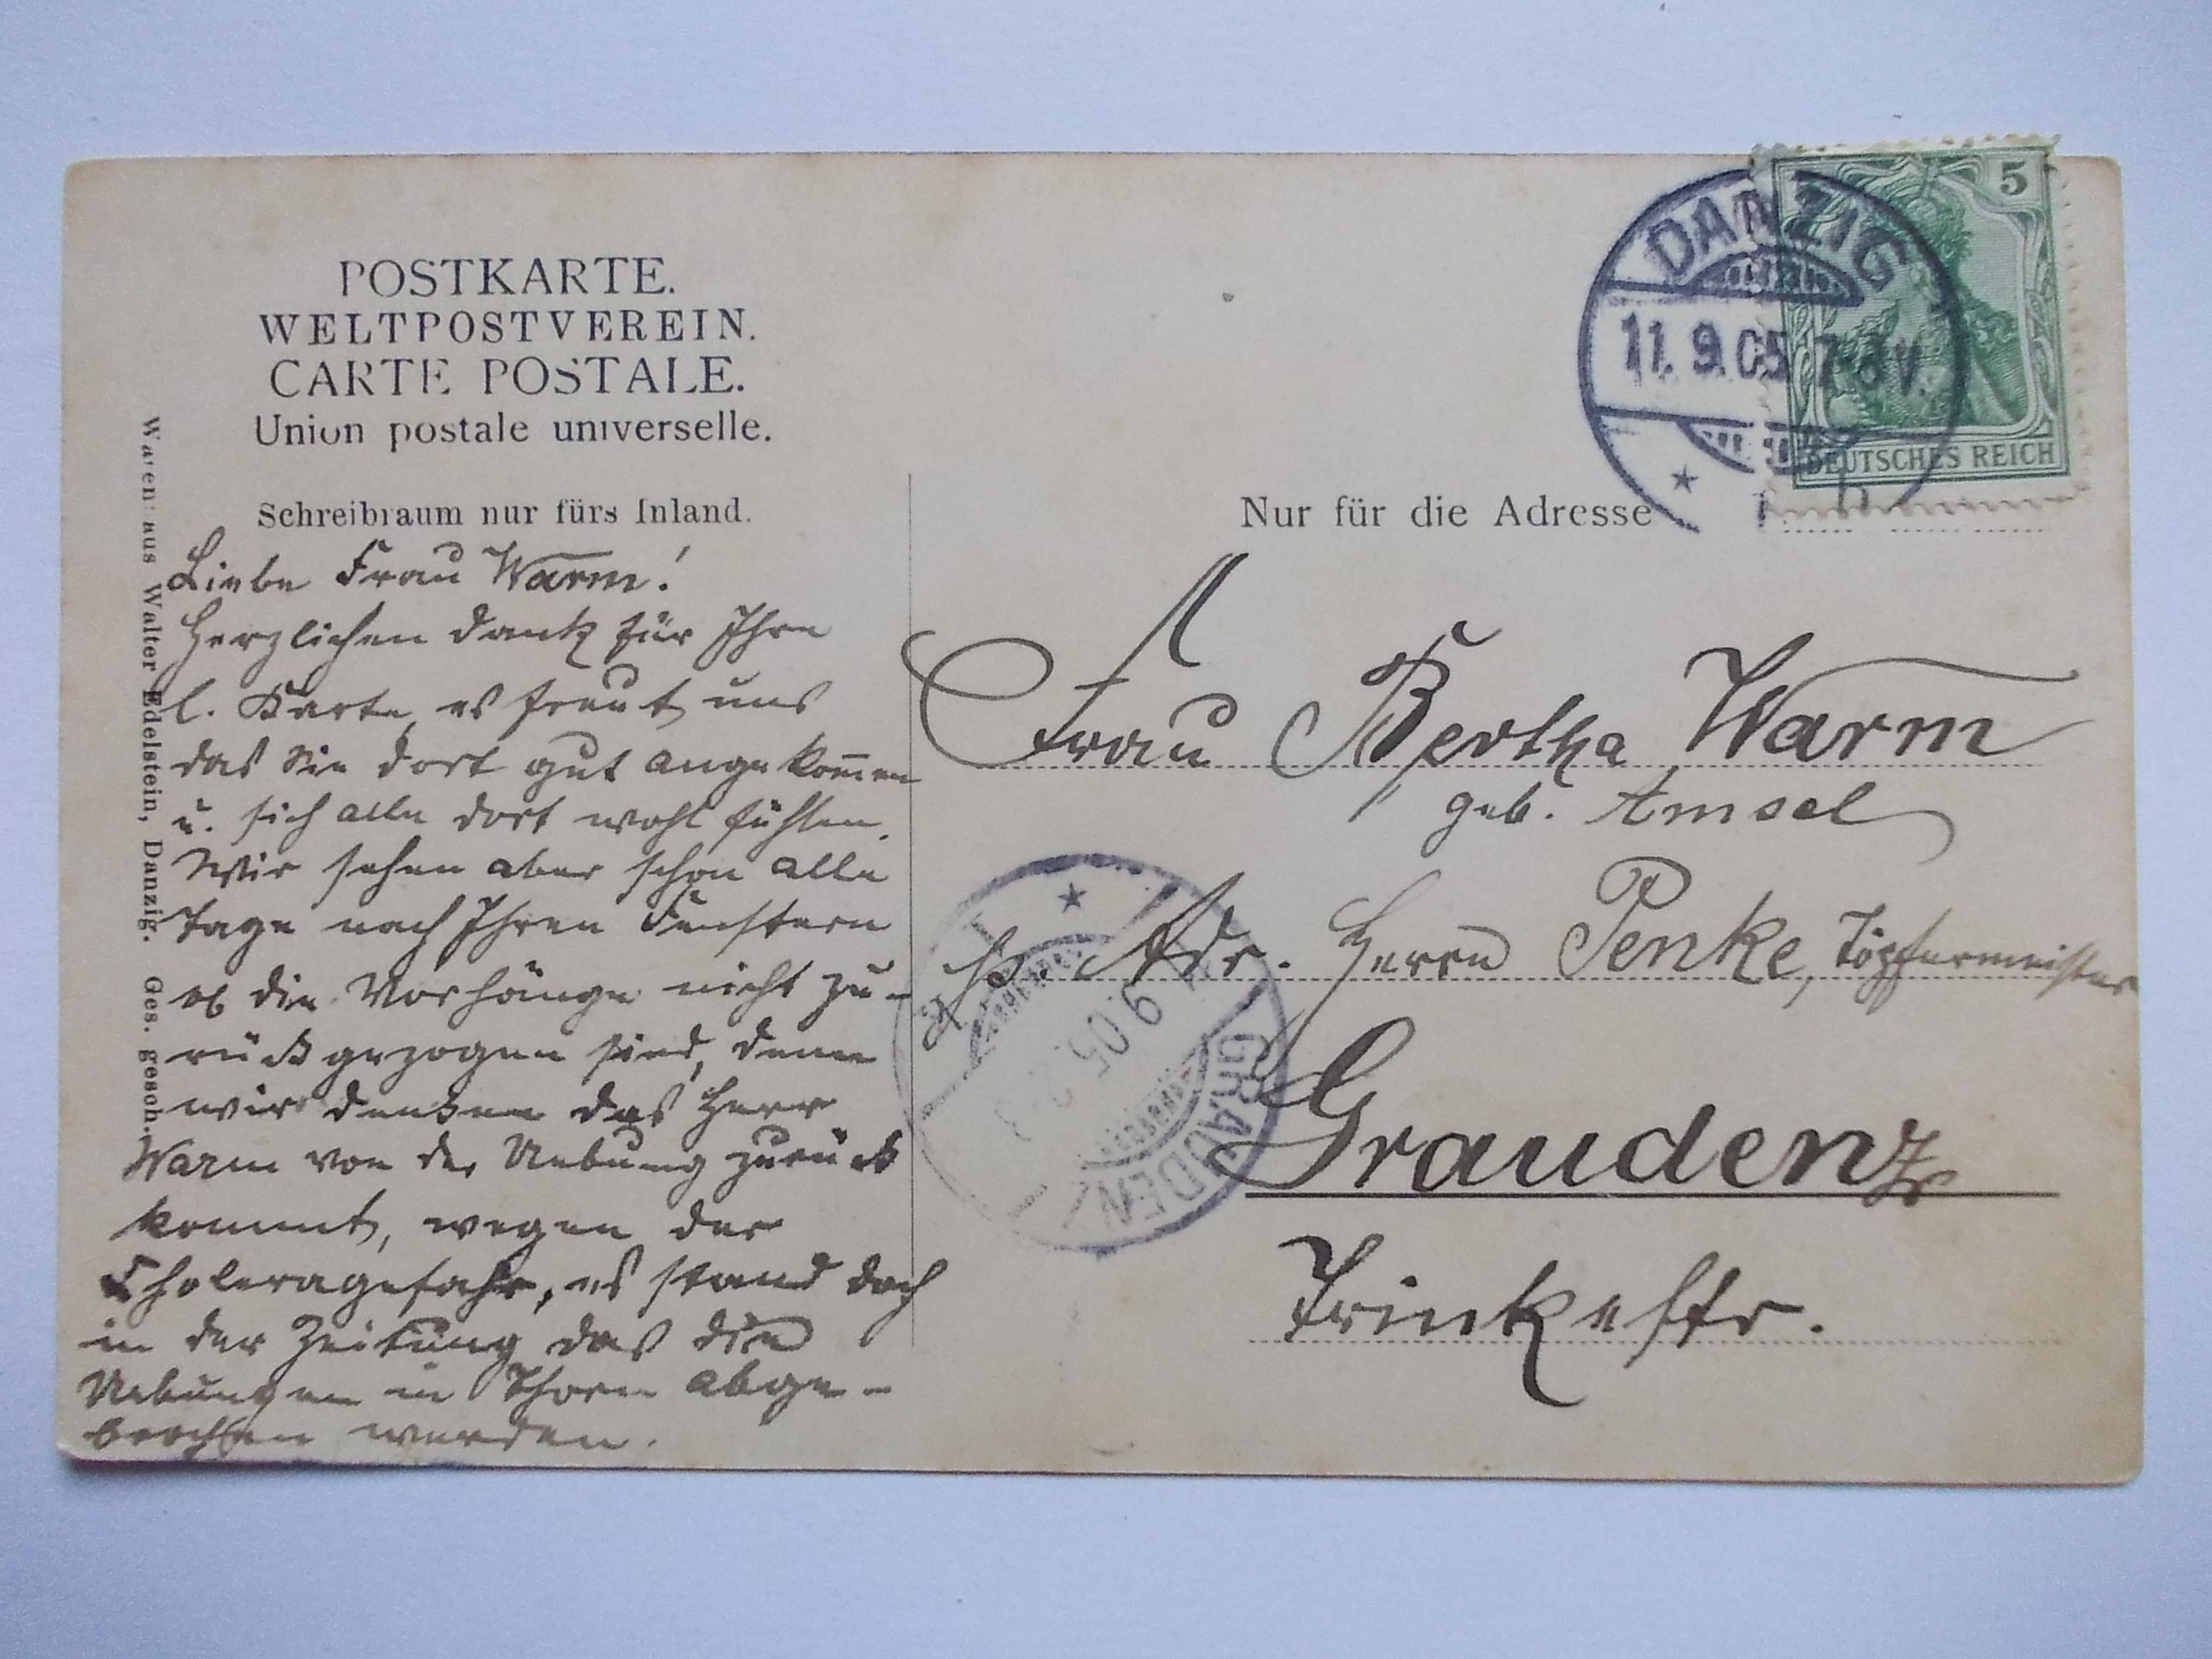 POSTKARTE.
WELTPOSTVEREIN.
CARTE POSTALE.
Union postale universelle.
Schreibraum nur fürs Inland.
Liebe Frau Warm!
Herzlichen Dank für Ihre
l. Karte, es freut uns
das Sie dort gut angekom̅en
u. sich alle dort wohl fühlen.
Wir sehen aber schon alle
Tage nach Ihren Fenstern
ob die Vorhänge nicht zu-
rückgezogen sind, denn
wir denken das Herr
Warm von der Uebung zurück
kommt, wegen der
Choleragefahr, es stand doch
in der Zeitung das die
Uebungen in Thorn abge-
brochen werden.
Waren aus Walter Edelstein, Danzig. Ges. gesch.
5
DEUTSCHES REICH
DANZIG
11.9.05 7-8V.
Nur für die Adresse
Frau Bertha Warm
geb. Amsel
p. Adr. Herrn Penke, Töpfermeister
Graudenz
Trinkestr.
GRAUDENZ
9.05.